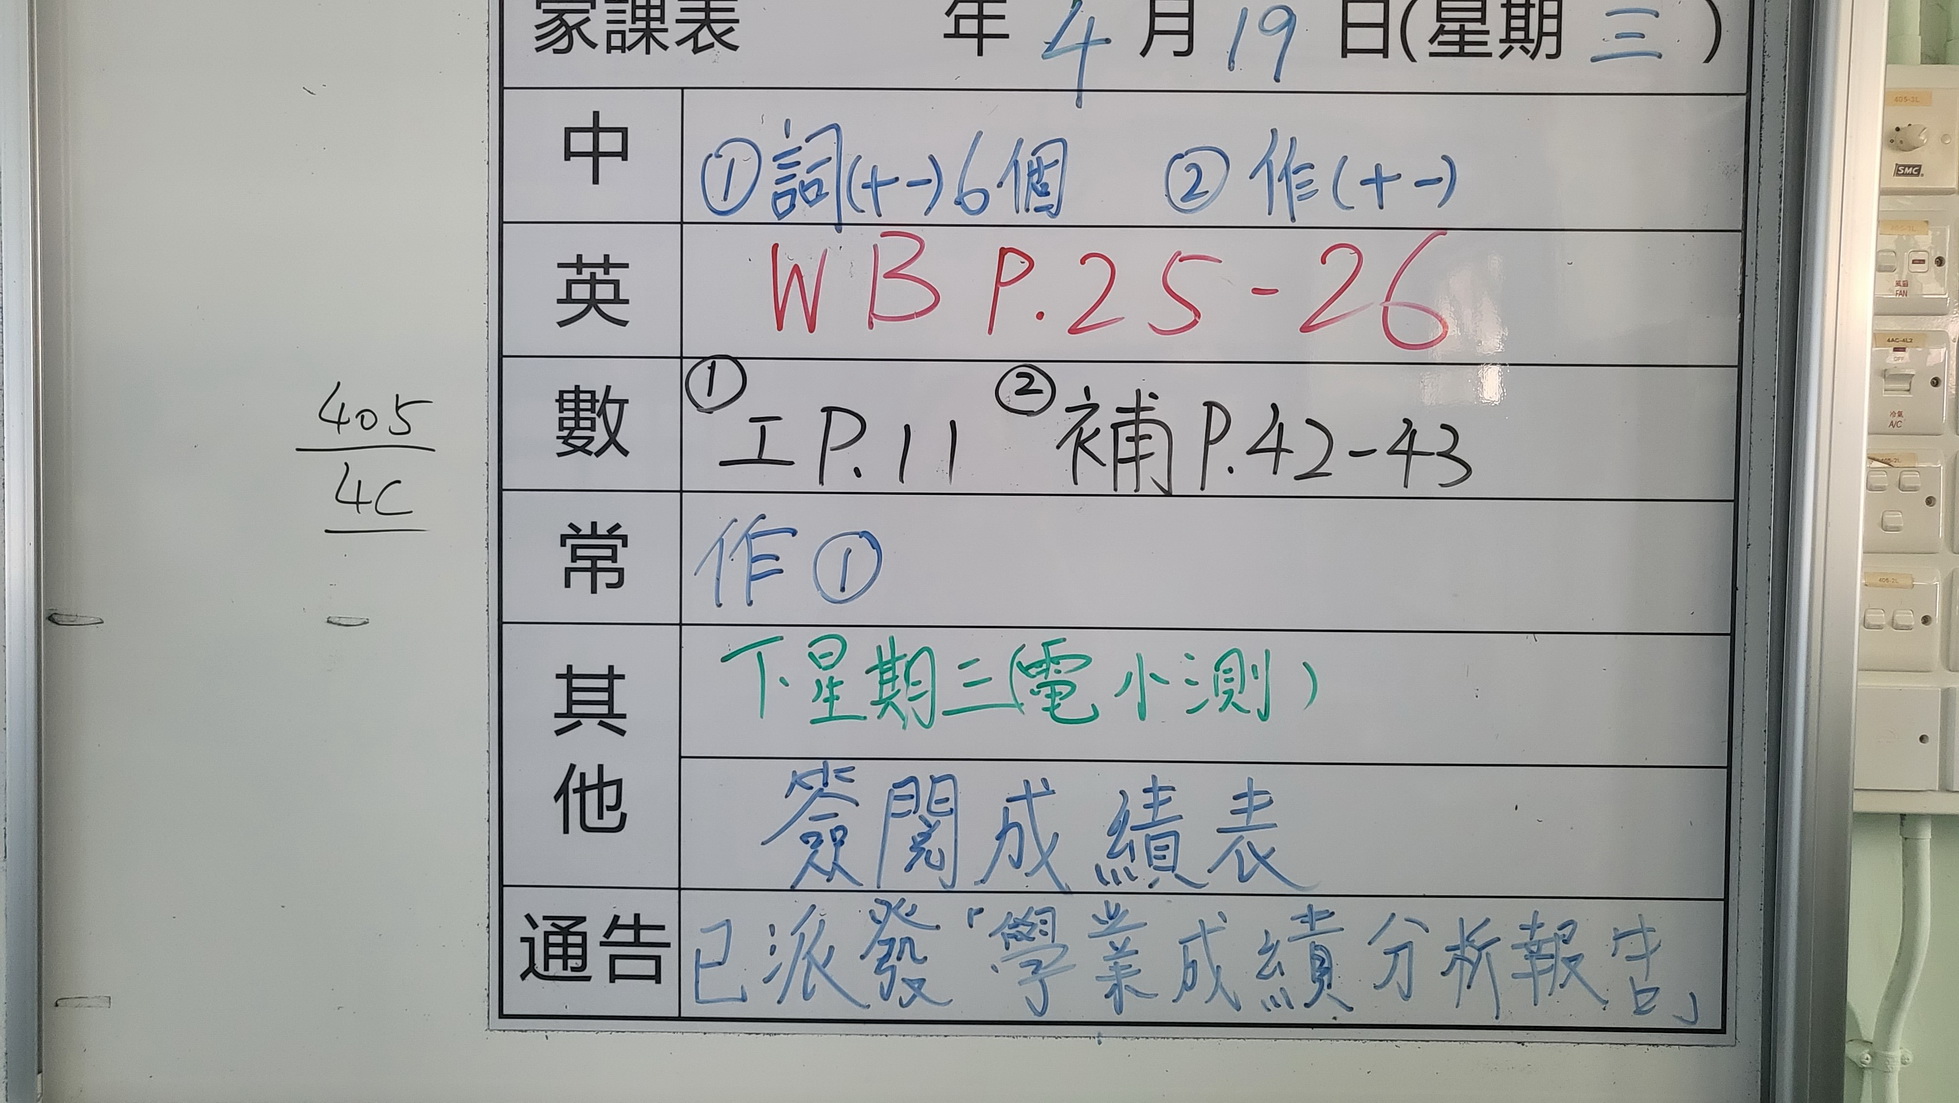 家課表 年4月19日(星期三)
中 ①詞(十一)6個 ②作(十一)
英 WB P.25-26
數 ①工P.11 ②補P.42-43
405
4C
常 作①
其他 下星期三(電小測)
簽閱成績表
通告 已派發「學業成績分析報告」
SMC
FAN
4AC-4L2
OFF
冷氣
A/C
405-2L